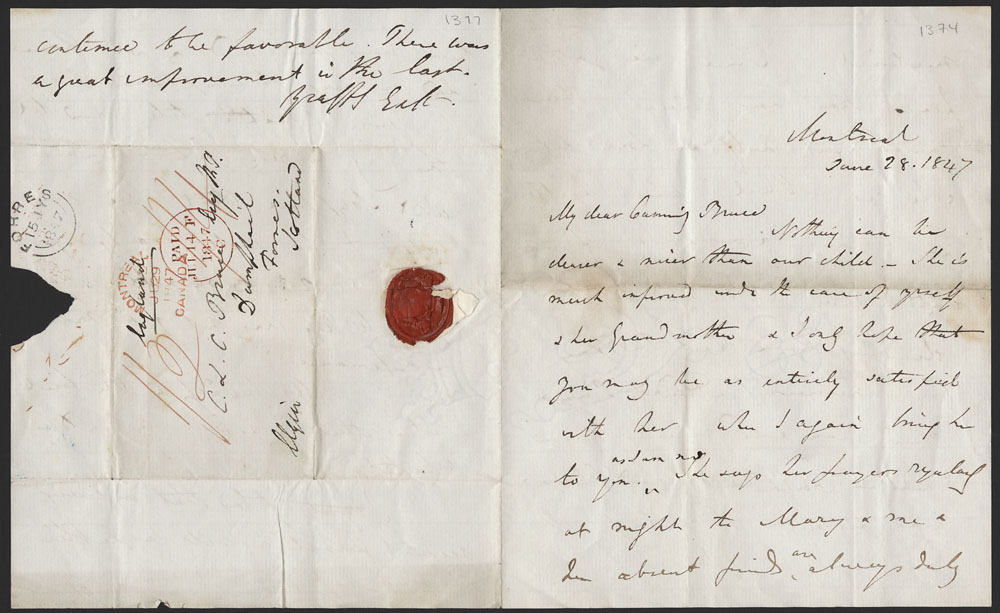 1377
continue to be favorable. There was
a great improvement in the last.
Yrs aff Elgin
FORRES
JY 15
1847
MONTREAL
JU 29
1847
CANADA
PAID
JU 14 F
1847
England
C. L. C. Bruce Esq M.P.
Dumphail
Forres
Scotland
Elgin
1374
Montreal
June 28. 1847
My dear Cumming Bruce
Nothing can be
dearer & nicer than our child - She is
much improved under the care of myself
& her Grandmother & I only hope that
you may be as entirely satisfied
with her when I again bring her
as I am now
to you. She says her prayers regularly
at night to Mary & me &
her absent friends are always duly